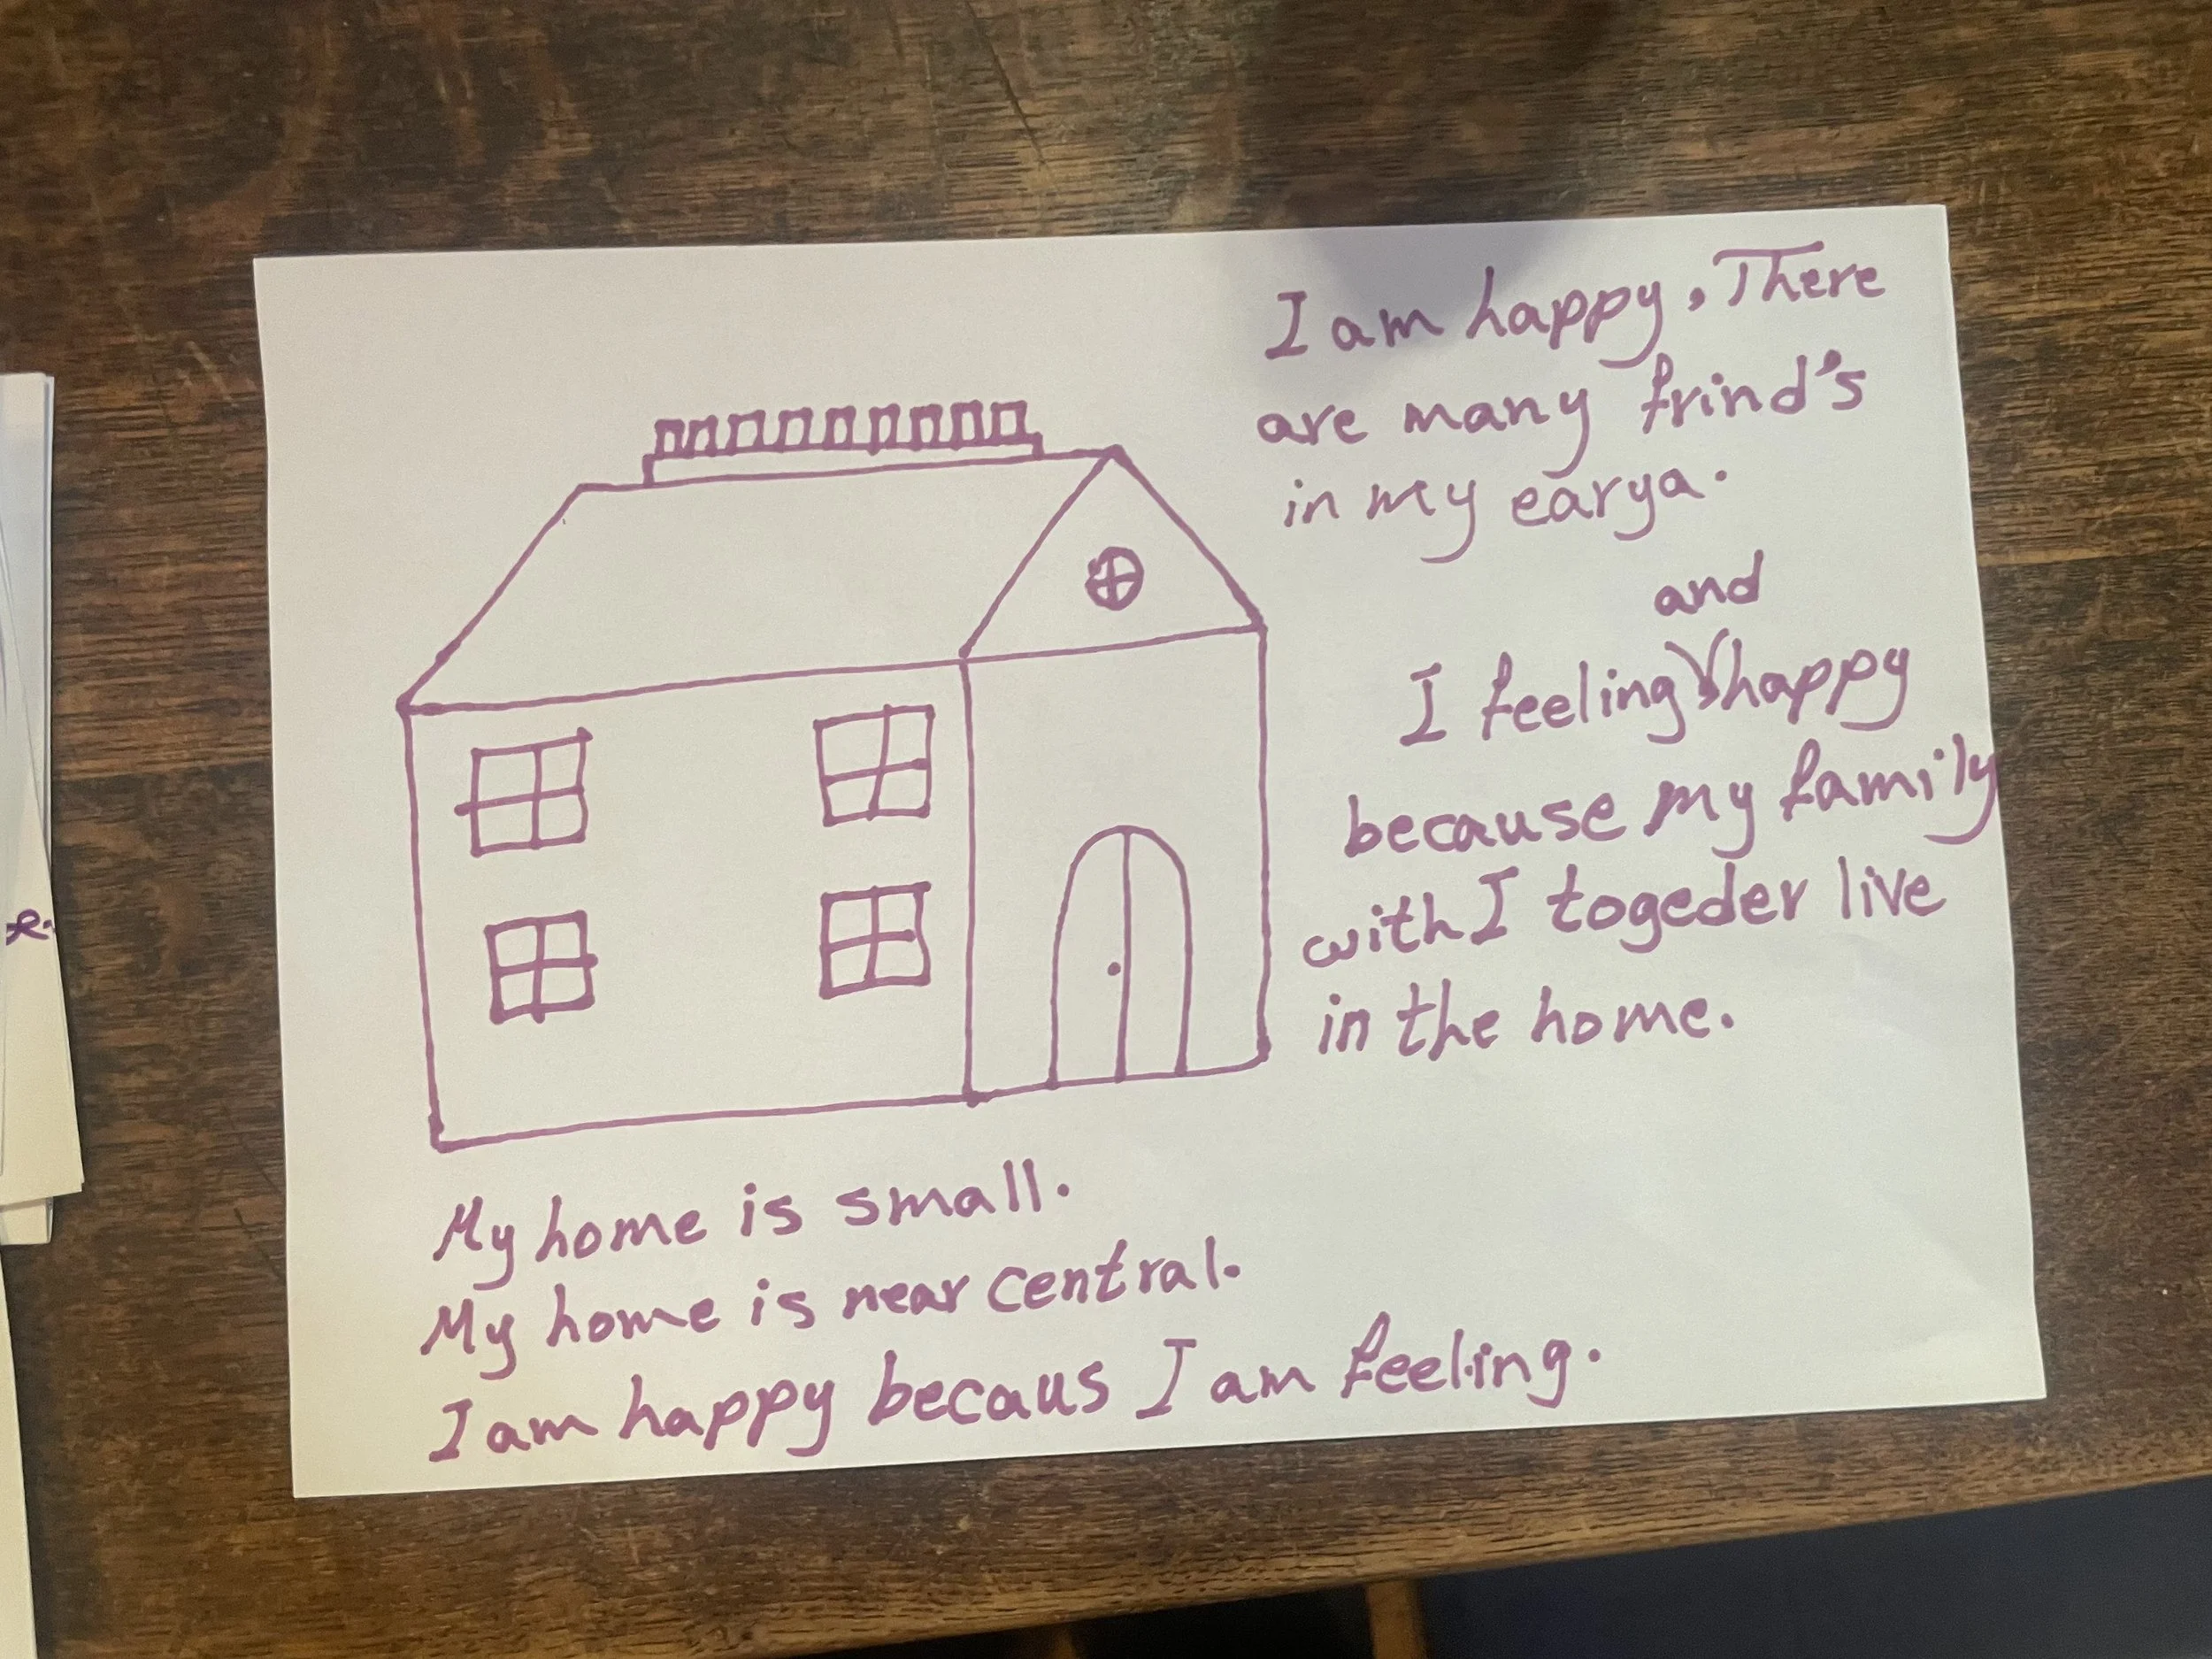 I am happy, There
are many frind's
in my earya.
and
I feeling happy
because my family
with I togeder live
in the home.
My home is small.
My home is near central.
I am happy becaus I am feeling.